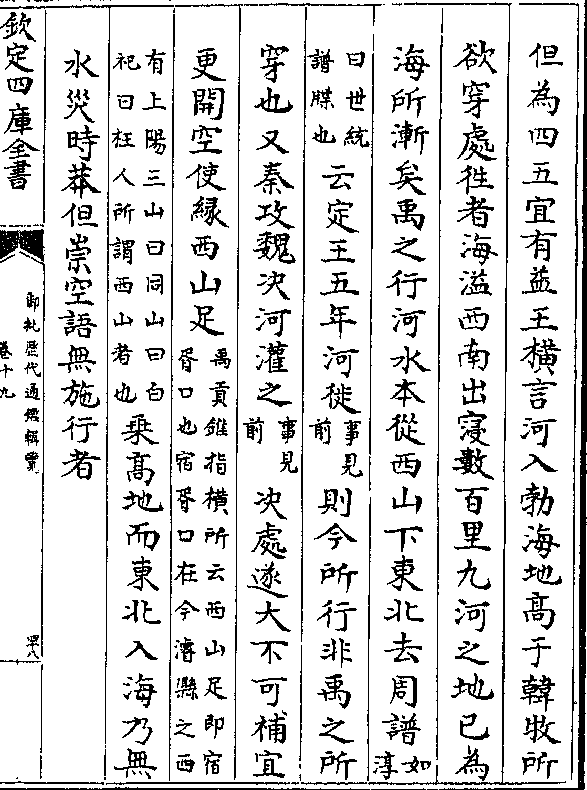 但為四五宜有益王橫言河入勃海地高于韓牧所
欲穿處徃者海溢西南出寖數百里九河之地已為
海所漸矣禹之行河水本從西山下東北去周譜如淳
曰世統譜牒也云定王五年河徙事見前則今所行非禹之所
穿也又秦攻魏决河灌之事見前决處遂大不可補宜
更開空使縁西山足禹貢錐指橫所云西山足即宿胥口也宿胥口在今濬縣之西
有上陽三山曰同山曰白祀曰枉人所謂西山者也乗高地而東北入海乃無
水災時莽但崇空語無施行者
欽定四庫全書
御批歴代通鑑輯覽
卷十九